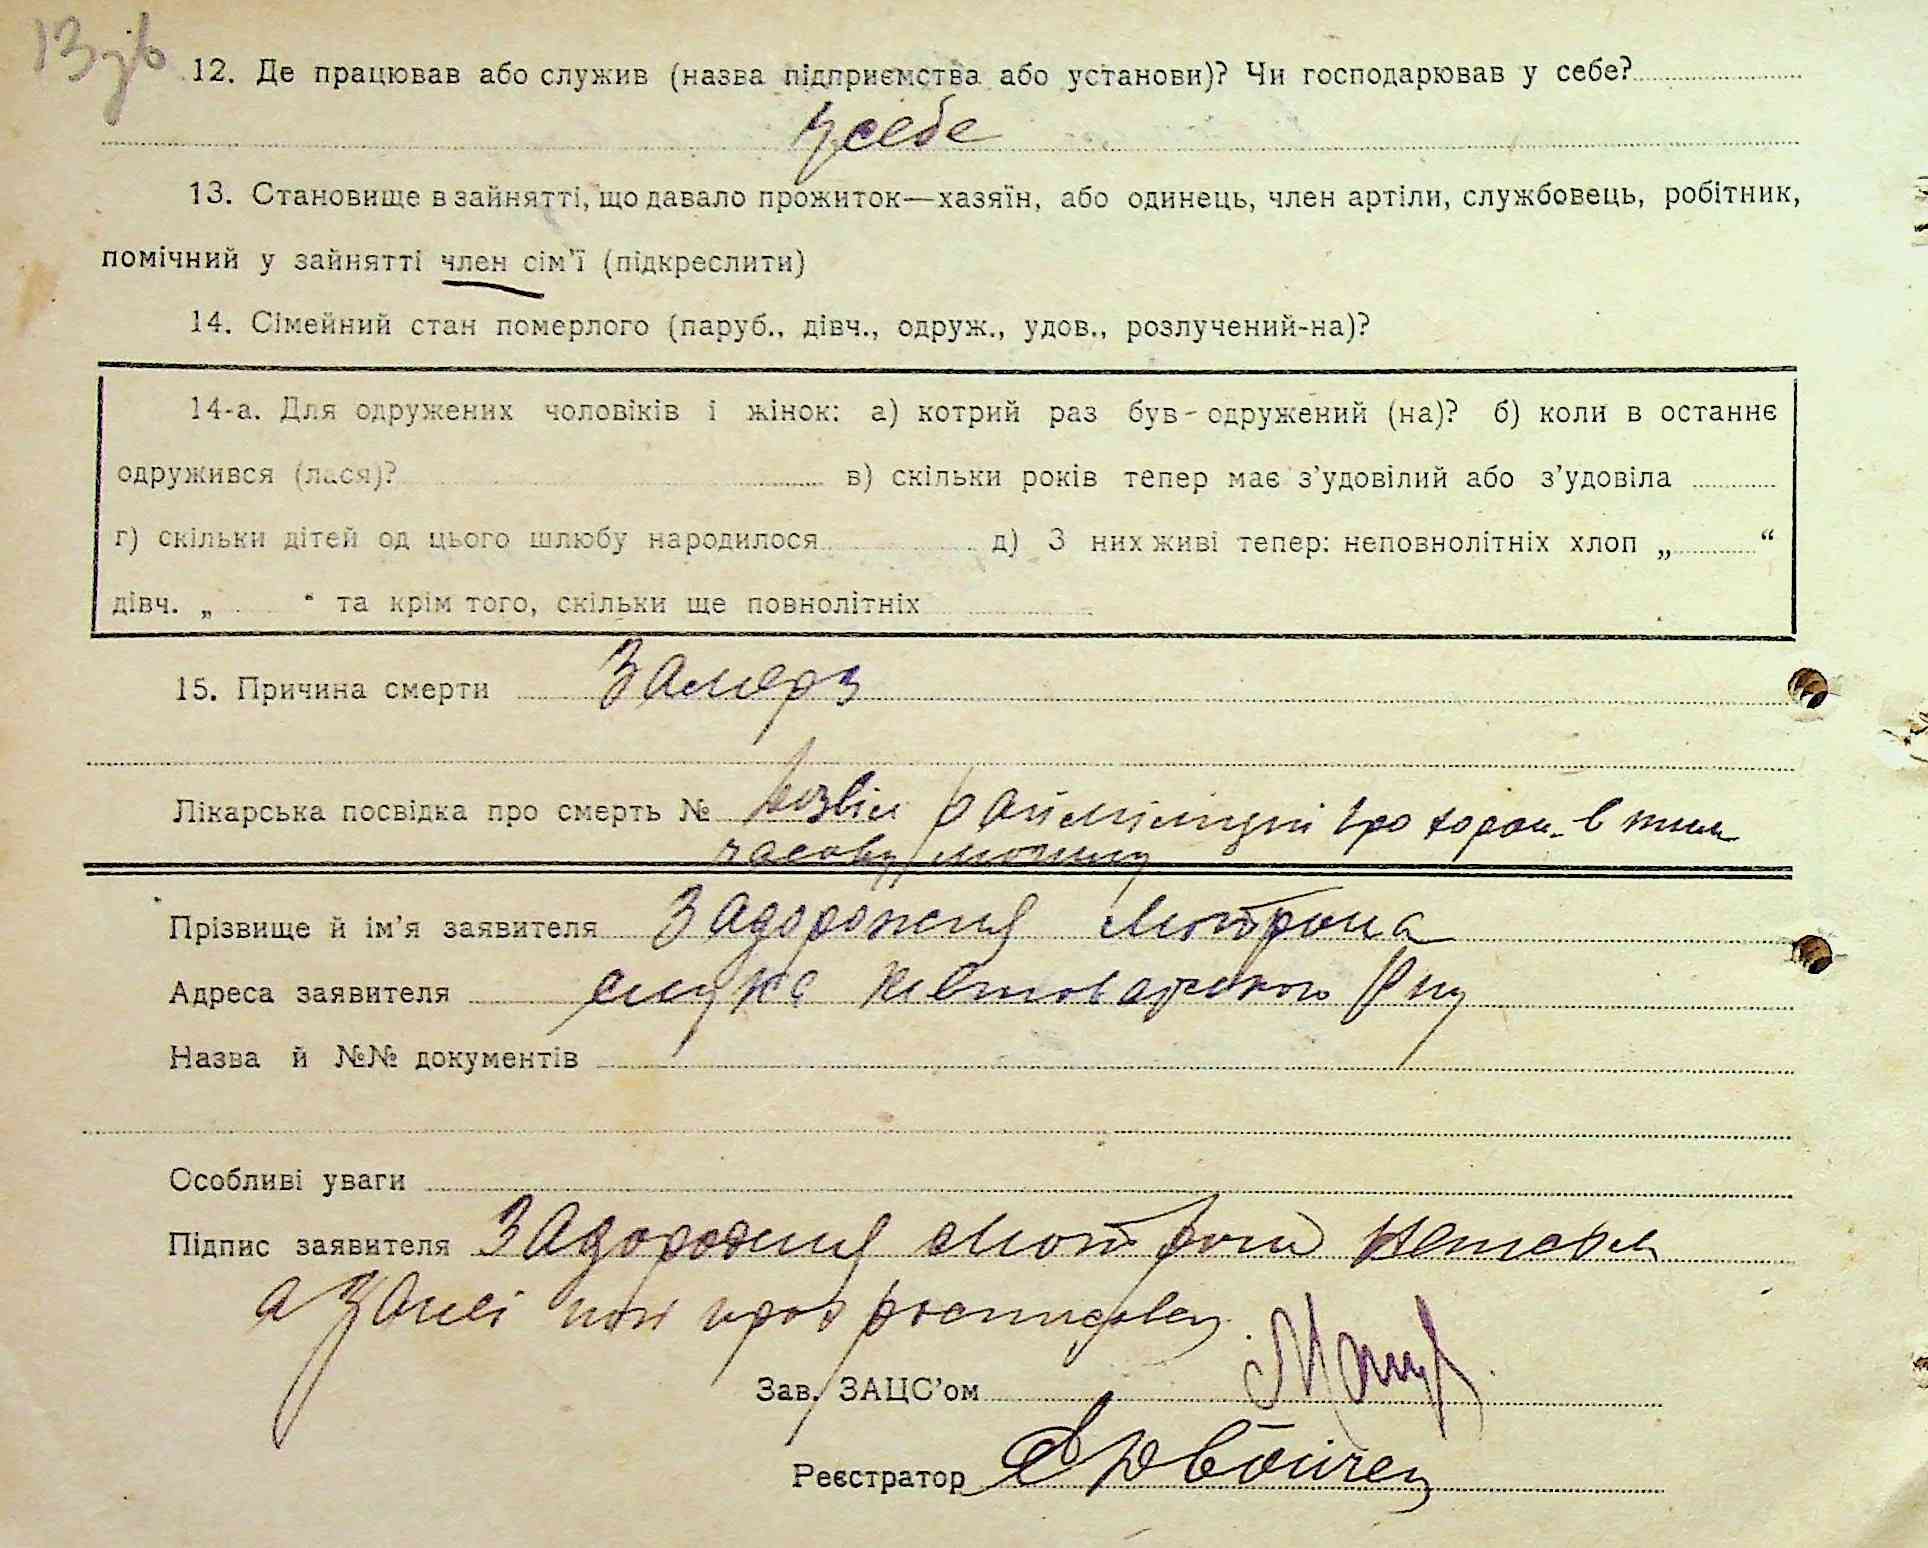 13зв
12. Де працював або служив (назва підприємства або установи)? Чи господарював у себе?
у себе
13. Становище в зайнятті, що давало прожиток—хазяїн, або одинець, член артіли, службовець, робітник,
помічний у зайнятті член сім'ї (підкреслити)
14. Сімейний стан померлого (паруб., дівч., одруж., удов., розлучений-на)?
14-а. Для одружених чоловіків і жінок: а) котрий раз був одружений (на)? б) коли в останнє
одружився (лася)? в) скільки років тепер має з'удовілий або з'удовіла
г) скільки дітей од цього шлюбу народилося д) З них живі тепер: неповнолітніх хлоп „ “
дівч. „ “ та крім того, скільки ще повнолітніх
15. Причина смерти Замерз
Лікарська посвідка про смерть № дозвіл райміліції про хорон. в тим
часову могилу
Прізвище й ім'я заявителя Задорожня Мотрона
Адреса заявителя
Назва й №№ документів
Особливі уваги
Підпис заявителя Задорожня Мотрона
а за неі
Зав. ЗАЦС'ом
Реєстратор